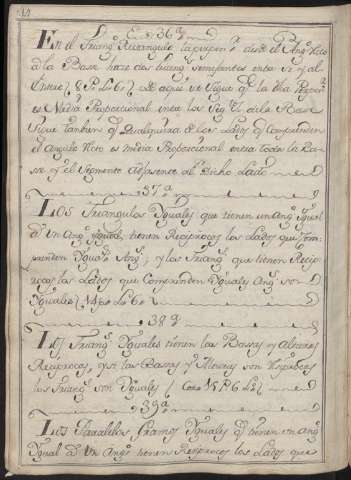 36ª
En el Triangº Rectangulo la perpenᵉ desde el Angº Recto
à la Base hace dos triangˢ semejantes entre si y al
Entero (8 Pº Lº 6º) de aqui se sigue qᵉ la tha Perpenᵉ
es Media Proporcional entre los Segᵗˢ de la Base
Sigue tambien qᵉ Qualquiera de los Lados qᵉ Comprenden
el angulo Recto es media Proporcional entre toda la Ba-
se y el Segmento Adjasente al Dicho Lado
37ª
Los Triangulos Yguales que tienen un Angº Ygual
à Un Angº Ygual, tienen Reciprocos los Lados que Com-
prenden Ygualˢ Angˢ; y los Triangˢ que tienen Recip-
rocos los Lados que Comprenden Yguales Angˢ son
Yguales (14 Pº Lº 6º)
38ª
Los Triangˢ Yguales tienen las Bases y Alturas
Reciprocas, y si las Bases y Alturas son Reciprocas
los Triangˢ son Yguales (Coro 15 P 6 L)
39ª
Los Paralelos Gramos Yguales qᵉ tienen un angº
Ygual à Un Angº tienen Reciprocos los Lados que